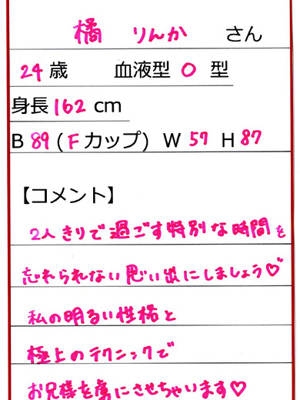 橘 りんか さん
24歳 血液型 O 型
身長 162 cm
B 89 (F カップ) W 57 H 87
【コメント】
2人きりで過ごす特別な時間を
忘れられない思い出にしましょう♡
私の明るい性格と
極上のテクニックで
お兄様を虜にさせちゃいます♡